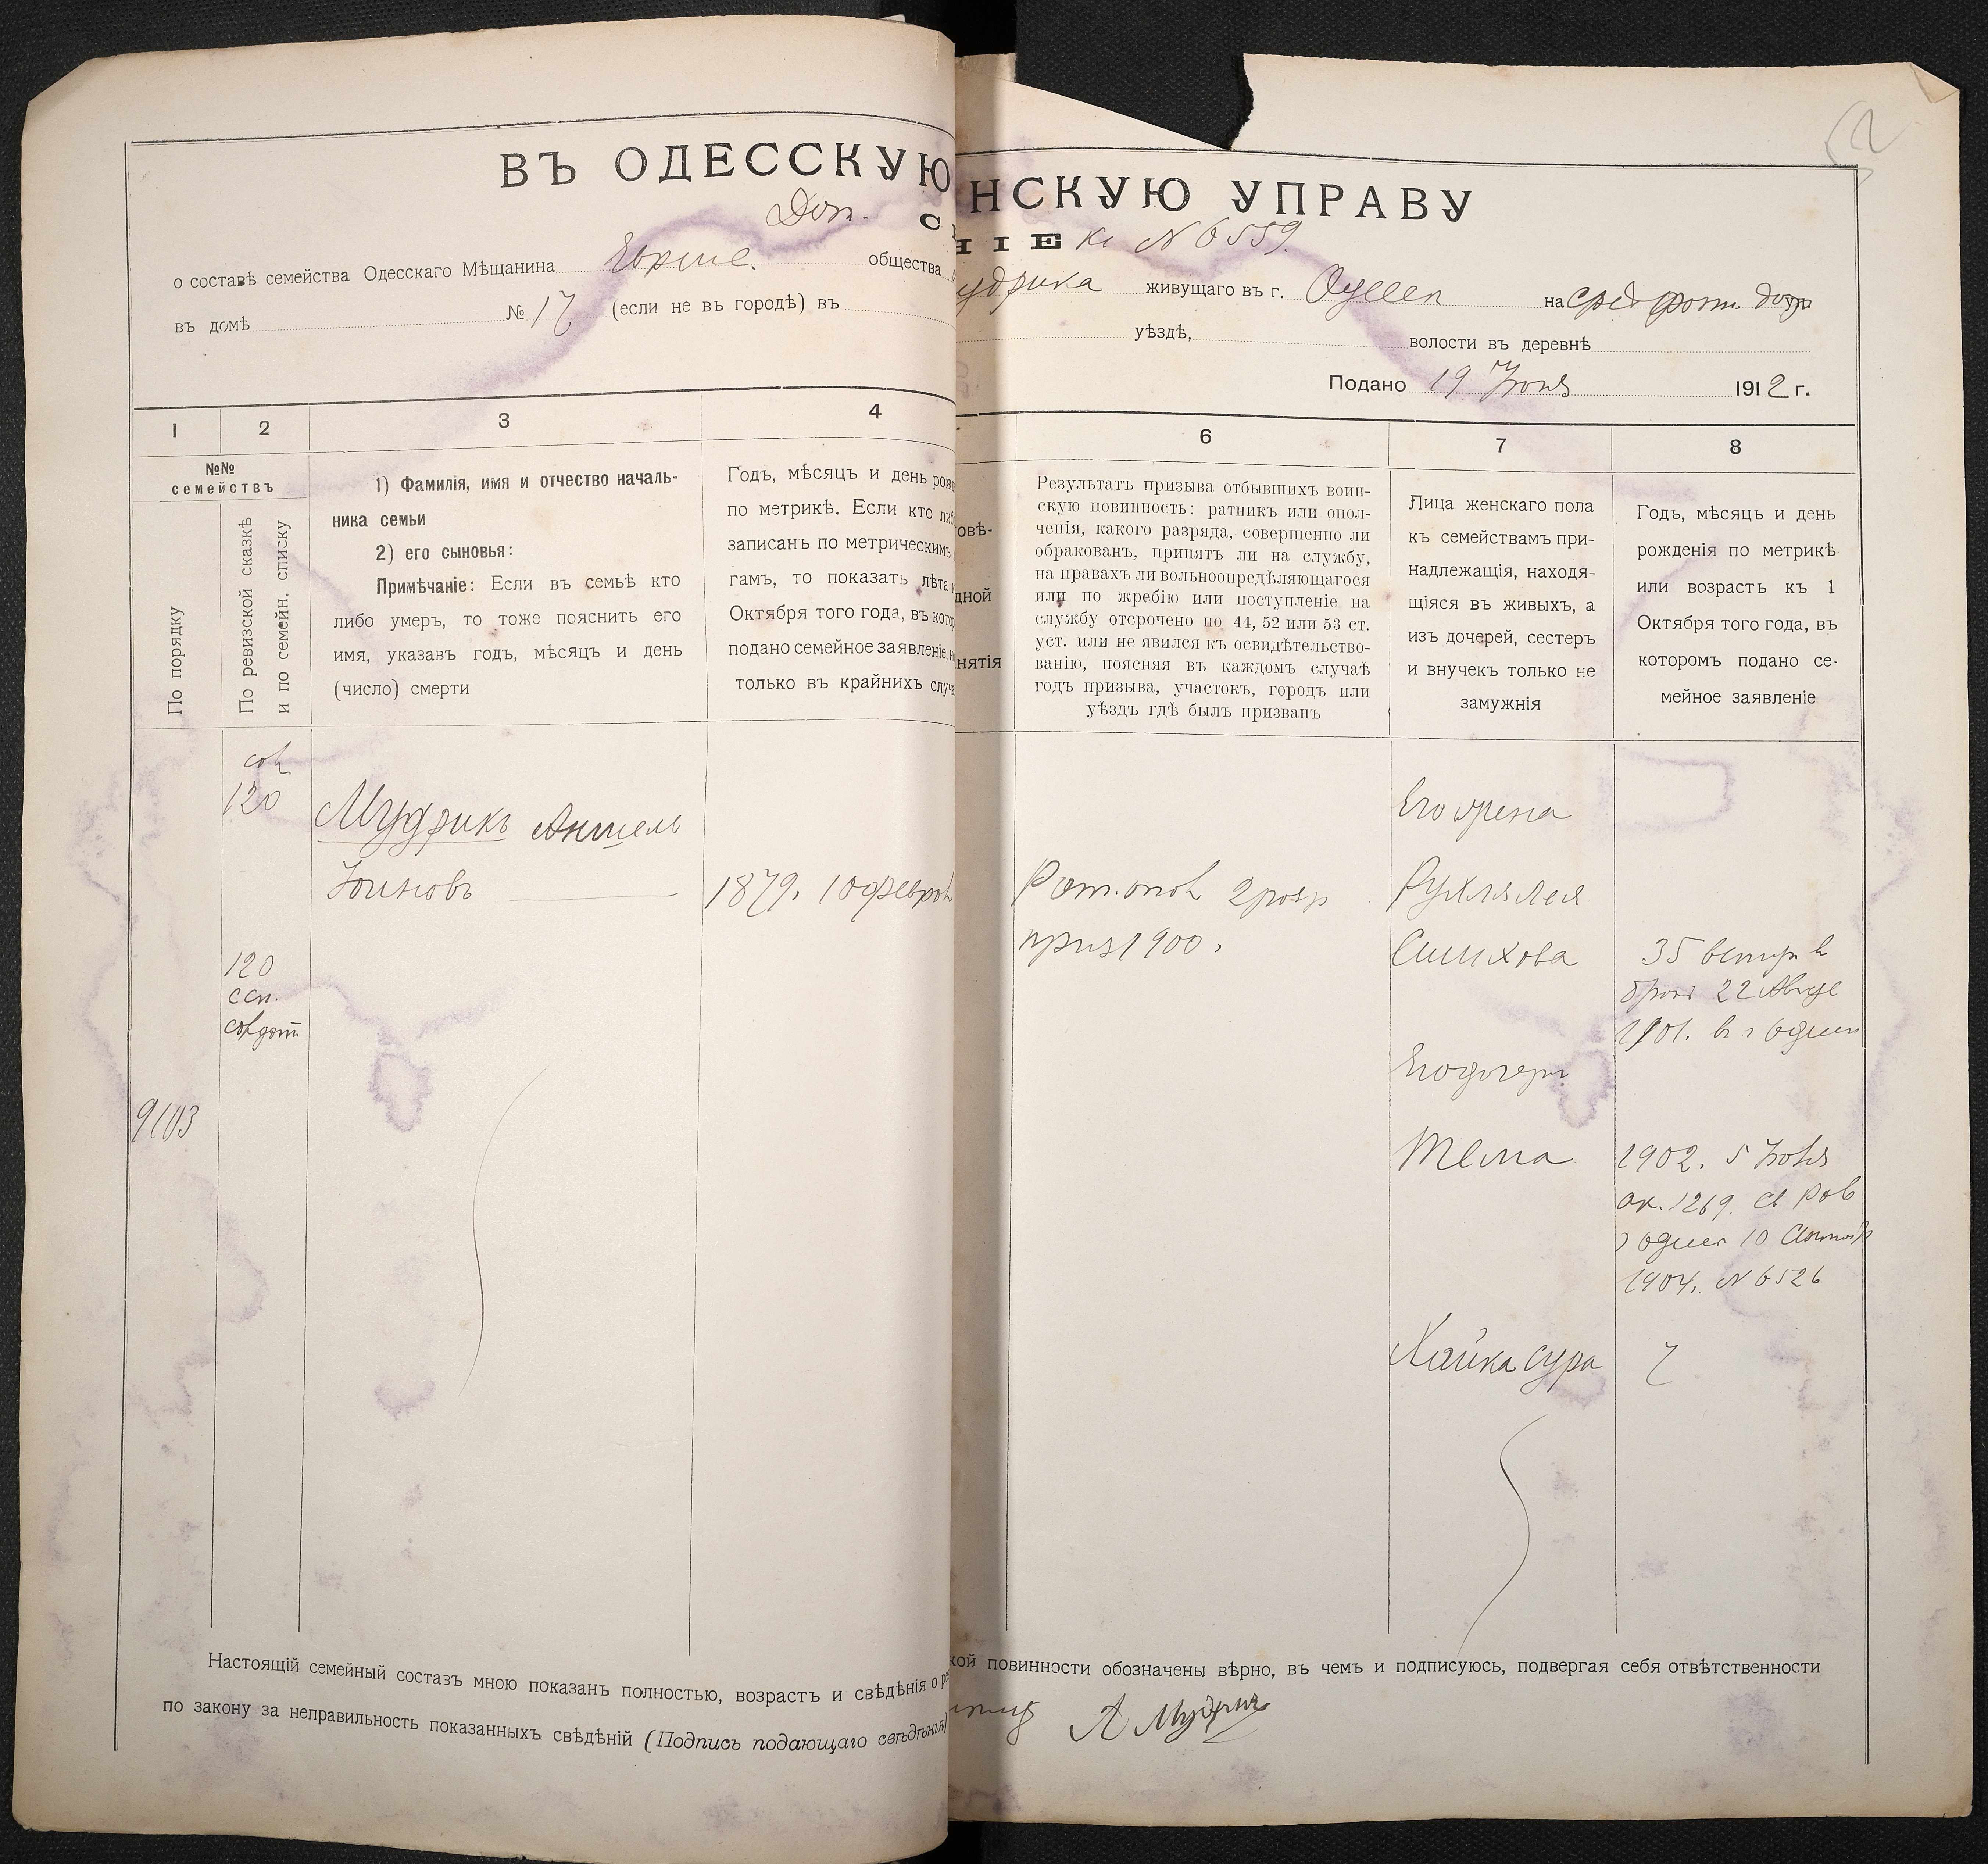 ВЪ ОДЕССКУЮ
НСКУЮ УПРАВУ
Доп.
НІЕ къ № 6559.
о составѣ семейства Одесскаго Мѣщанина Евр
общества
удрика живущаго въ г. Одессѣ на
въ домѣ № 17 (если не въ городѣ) въ
уѣздѣ, волости въ деревнѣ
Подано 19 Іюня 1912 г.
1 2 3 4
6 7 8
№№
семействъ
По порядку
По ревизской сказкѣ
и по семейн. списку
1) Фамилія, имя и отчество началь-
ника семьи
2) его сыновья:
Примѣчаніе: Если въ семьѣ кто
либо умеръ, то тоже пояснить его
имя, указавъ годъ, мѣсяцъ и день
(число) смерти
Годъ, мѣсяцъ и день рож
по метрикѣ. Если кто либ
записанъ по метрическимъ
гамъ, то показать лѣта
Октября того года, въ кото
подано семейное заявленіе,
только въ крайнихъ случа
овѣ-
дной
нятія
Результатъ призыва отбывшихъ воин-
скую повинность: ратникъ или опол-
ченія, какого разряда, совершенно ли
обракованъ, принятъ ли на службу,
на правахъ ли вольноопредѣляющагося
или по жребію или поступленіе на
службу отсрочено по 44, 52 или 53 ст.
уст. или не явился къ освидѣтельство-
ванію, поясняя въ каждомъ случаѣ
годъ призыва, участокъ, городъ или
уѣздъ гдѣ былъ призванъ
Лица женскаго пола
къ семействамъ при-
надлежащія, находя-
щіяся въ живыхъ, а
изъ дочерей, сестеръ
и внучекъ только не
замужнія
Годъ, мѣсяцъ и день
рожденія по метрикѣ
или возрастъ къ 1
Октября того года, въ
которомъ подано се-
мейное заявленіе
120
Мудрикъ Аншель
Іоиновъ 1879. 10 феврал
120
9103
Рат. опол 2 разр
приз 1900.
Его жена
Рухля Лея
Симхова
35
22 Авгус
1901. въ г Одесс
Его дочери
Тема
1902. 5 Іюля
ак. 1269.
г Одесс 10
1904. № 6526
Хайка Сура 7
Настоящій семейный составъ мною показанъ полностью, возрастъ и свѣдѣнія о
кой повинности обозначены вѣрно, въ чемъ и подписуюсь, подвергая себя отвѣтственности
по закону за неправильность показанныхъ свѣдѣній (Подпись подающаго свѣдѣнія)
А Мудрик